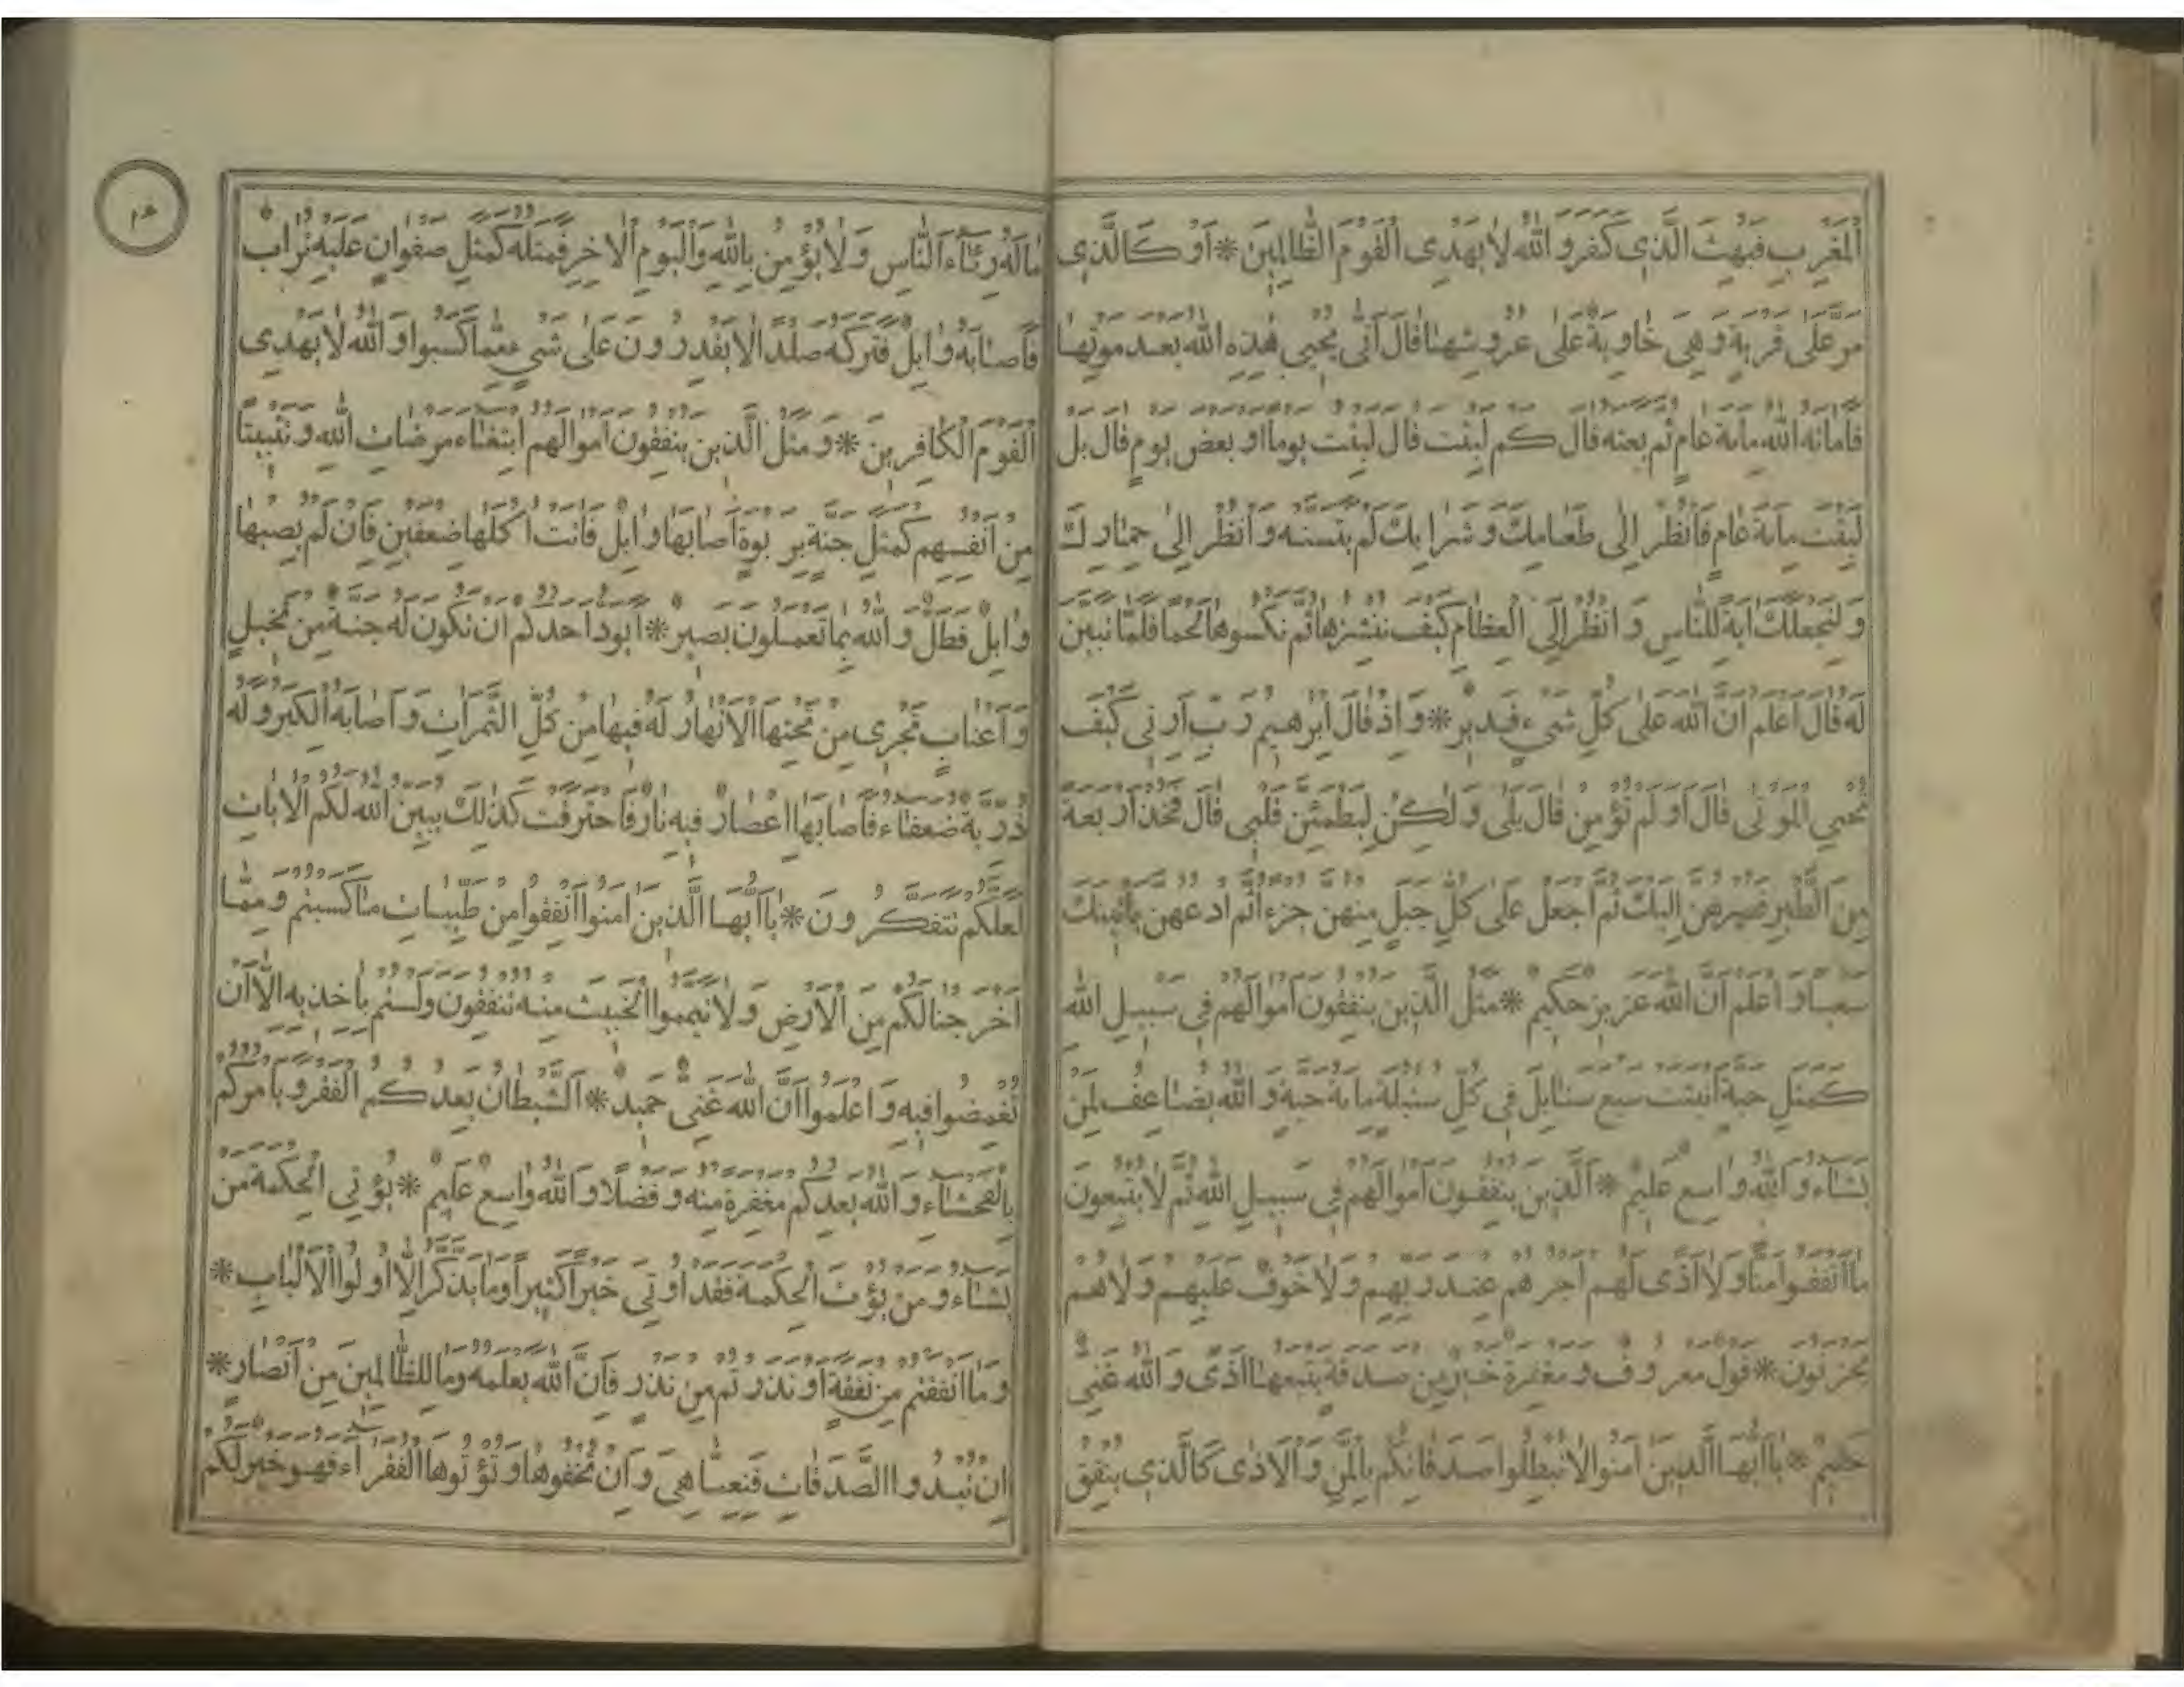 الْمَغْرِبِ فَبُهِتَ الَّذِي كَفَرَ وَاللّٰهُ لَا يَهْدِي الْقَوْمَ الظَّالِمِينَ * أَوْ كَالَّذِي
مَرَّ عَلَى قَرْيَةٍ وَهِيَ خَاوِيَةٌ عَلَى عُرُوشِهَا قَالَ أَنَّى يُحْيِي هٰذِهِ اللّٰهُ بَعْدَ مَوْتِهَا
فَأَمَاتَهُ اللّٰهُ مِايَةَ عَامٍ ثُمَّ بَعَثَهُ قَالَ كَمْ لَبِثْتَ قَالَ لَبِثْتُ يَوْمًا أَوْ بَعْضَ يَوْمٍ قَالَ بَلْ
لَبِثْتَ مِايَةَ عَامٍ فَانْظُرْ إِلَى طَعَامِكَ وَشَرَابِكَ لَمْ يَتَسَنَّهْ وَانْظُرْ إِلَى حِمَارِكَ
وَلِنَجْعَلَكَ آيَةً لِلنَّاسِ وَانْظُرْ إِلَى الْعِظَامِ كَيْفَ نُنْشِزُهَا ثُمَّ نَكْسُوهَا لَحْمًا فَلَمَّا تَبَيَّنَ
لَهُ قَالَ أَعْلَمُ أَنَّ اللّٰهَ عَلَى كُلِّ شَيْءٍ قَدِيرٌ * وَإِذْ قَالَ إِبْرٰهِيمُ رَبِّ أَرِنِي كَيْفَ
تُحْيِي الْمَوْتَى قَالَ أَوَلَمْ تُؤْمِنْ قَالَ بَلَى وَلٰكِنْ لِيَطْمَئِنَّ قَلْبِي قَالَ فَخُذْ أَرْبَعَةً
مِنَ الطَّيْرِ فَصُرْهُنَّ إِلَيْكَ ثُمَّ اجْعَلْ عَلَى كُلِّ جَبَلٍ مِنْهُنَّ جُزْءًا ثُمَّ ادْعُهُنَّ يَأْتِينَكَ
سَعْيًا وَاعْلَمْ أَنَّ اللّٰهَ عَزِيزٌ حَكِيمٌ * مَثَلُ الَّذِينَ يُنْفِقُونَ أَمْوَالَهُمْ فِي سَبِيلِ اللّٰهِ
كَمَثَلِ حَبَّةٍ أَنْبَتَتْ سَبْعَ سَنَابِلَ فِي كُلِّ سُنْبُلَةٍ مِايَةُ حَبَّةٍ وَاللّٰهُ يُضَاعِفُ لِمَنْ
يَشَاءُ وَاللّٰهُ وَاسِعٌ عَلِيمٌ * الَّذِينَ يُنْفِقُونَ أَمْوَالَهُمْ فِي سَبِيلِ اللّٰهِ ثُمَّ لَا يُتْبِعُونَ
مَا أَنْفَقُوا مَنًّا وَلَا أَذًى لَهُمْ أَجْرُهُمْ عِنْدَ رَبِّهِمْ وَلَا خَوْفٌ عَلَيْهِمْ وَلَا هُمْ
يَحْزَنُونَ * قَوْلٌ مَعْرُوفٌ وَمَغْفِرَةٌ خَيْرٌ مِنْ صَدَقَةٍ يَتْبَعُهَا أَذًى وَاللّٰهُ غَنِيٌّ
حَلِيمٌ * يَا أَيُّهَا الَّذِينَ آمَنُوا لَا تُبْطِلُوا صَدَقَاتِكُمْ بِالْمَنِّ وَالْأَذَى كَالَّذِي يُنْفِقُ
٤٢
مَالَهُ رِئَاءَ النَّاسِ وَلَا يُؤْمِنُ بِاللّٰهِ وَالْيَوْمِ الْآخِرِ فَمَثَلُهُ كَمَثَلِ صَفْوَانٍ عَلَيْهِ تُرَابٌ
فَأَصَابَهُ وَابِلٌ فَتَرَكَهُ صَلْدًا لَا يَقْدِرُونَ عَلَى شَيْءٍ مِمَّا كَسَبُوا وَاللّٰهُ لَا يَهْدِي
الْقَوْمَ الْكَافِرِينَ * وَمَثَلُ الَّذِينَ يُنْفِقُونَ أَمْوَالَهُمُ ابْتِغَاءَ مَرْضَاتِ اللّٰهِ وَتَثْبِيتًا
مِنْ أَنْفُسِهِمْ كَمَثَلِ جَنَّةٍ بِرَبْوَةٍ أَصَابَهَا وَابِلٌ فَآتَتْ أُكُلَهَا ضِعْفَيْنِ فَإِنْ لَمْ يُصِبْهَا
وَابِلٌ فَطَلٌّ وَاللّٰهُ بِمَا تَعْمَلُونَ بَصِيرٌ * أَيَوَدُّ أَحَدُكُمْ أَنْ تَكُونَ لَهُ جَنَّةٌ مِنْ نَخِيلٍ
وَأَعْنَابٍ تَجْرِي مِنْ تَحْتِهَا الْأَنْهَارُ لَهُ فِيهَا مِنْ كُلِّ الثَّمَرَاتِ وَأَصَابَهُ الْكِبَرُ وَلَهُ
ذُرِّيَّةٌ ضُعَفَاءُ فَأَصَابَهَا إِعْصَارٌ فِيهِ نَارٌ فَاحْتَرَقَتْ كَذٰلِكَ يُبَيِّنُ اللّٰهُ لَكُمُ الْآيَاتِ
لَعَلَّكُمْ تَتَفَكَّرُونَ * يَا أَيُّهَا الَّذِينَ آمَنُوا أَنْفِقُوا مِنْ طَيِّبَاتِ مَا كَسَبْتُمْ وَمِمَّا
أَخْرَجْنَا لَكُمْ مِنَ الْأَرْضِ وَلَا تَيَمَّمُوا الْخَبِيثَ مِنْهُ تُنْفِقُونَ وَلَسْتُمْ بِآخِذِيهِ إِلَّا أَنْ
تُغْمِضُوا فِيهِ وَاعْلَمُوا أَنَّ اللّٰهَ غَنِيٌّ حَمِيدٌ * الشَّيْطَانُ يَعِدُكُمُ الْفَقْرَ وَيَأْمُرُكُمْ
بِالْفَحْشَاءِ وَاللّٰهُ يَعِدُكُمْ مَغْفِرَةً مِنْهُ وَفَضْلًا وَاللّٰهُ وَاسِعٌ عَلِيمٌ * يُؤْتِي الْحِكْمَةَ مَنْ
يَشَاءُ وَمَنْ يُؤْتَ الْحِكْمَةَ فَقَدْ أُوتِيَ خَيْرًا كَثِيرًا وَمَا يَذَّكَّرُ إِلَّا أُولُوا الْأَلْبَابِ *
وَمَا أَنْفَقْتُمْ مِنْ نَفَقَةٍ أَوْ نَذَرْتُمْ مِنْ نَذْرٍ فَإِنَّ اللّٰهَ يَعْلَمُهُ وَمَا لِلظَّالِمِينَ مِنْ أَنْصَارٍ *
إِنْ تُبْدُوا الصَّدَقَاتِ فَنِعِمَّا هِيَ وَإِنْ تُخْفُوهَا وَتُؤْتُوهَا الْفُقَرَاءَ فَهُوَ خَيْرٌ لَكُمْ